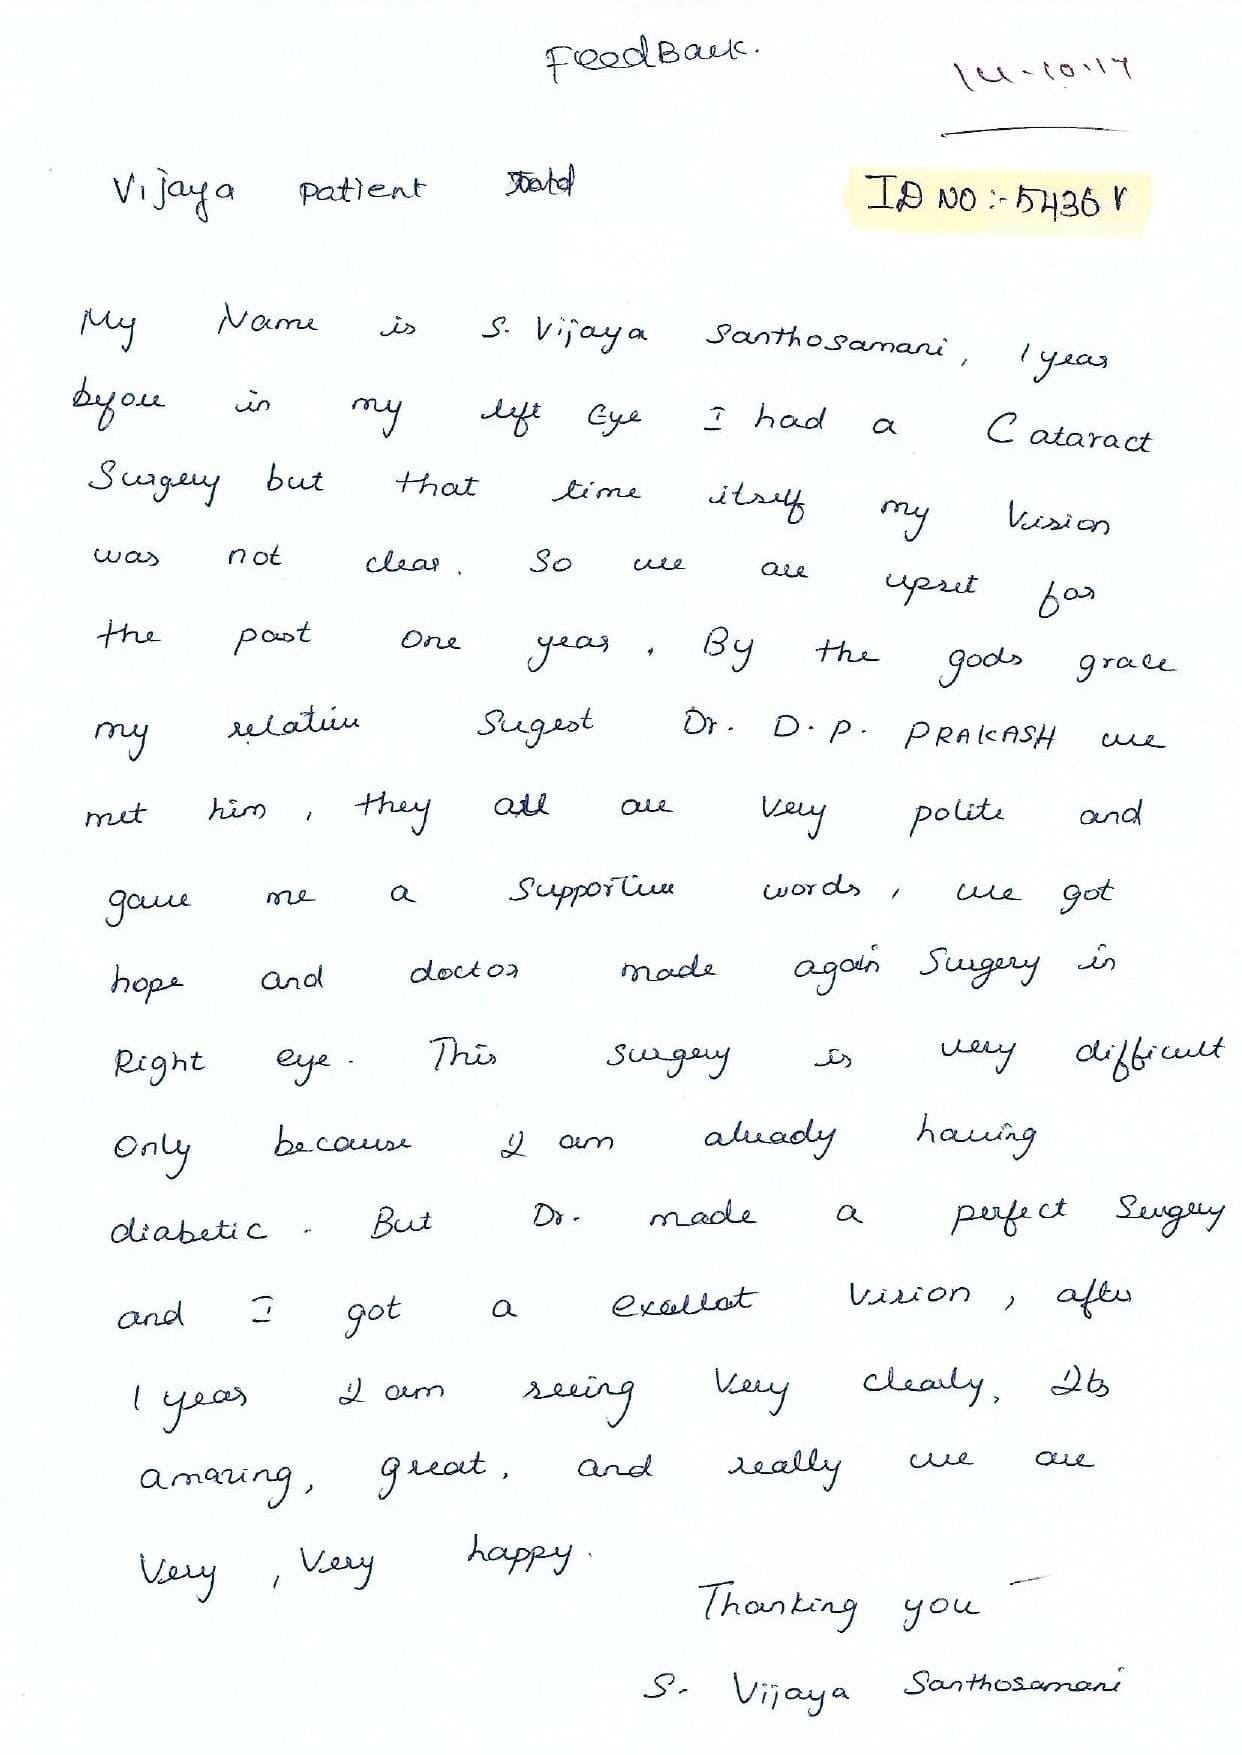 FeedBack.
14-10-17
Vijaya patient
ID NO :- 5436 V
My Name is S. Vijaya Santhosamani, 1 year
before in my left Eye I had a Cataract
Surgery but that time itself my Vision
was not clear. So we are upset for
the past one year. By the gods grace
my relative Sugest Dr. D. P. PRAKASH we
met him, they all are very polite and
gave me a supportive words, we got
hope and doctor made again Surgery in
Right eye. This surgery is very difficult
only because I am already having
diabetic. But Dr. made a perfect Surgery
and I got a exellat Vision, after
1 year I am seeing very clearly, Its
amazing, great, and really we are
very, very happy.
Thanking you
S. Vijaya Santhosamani